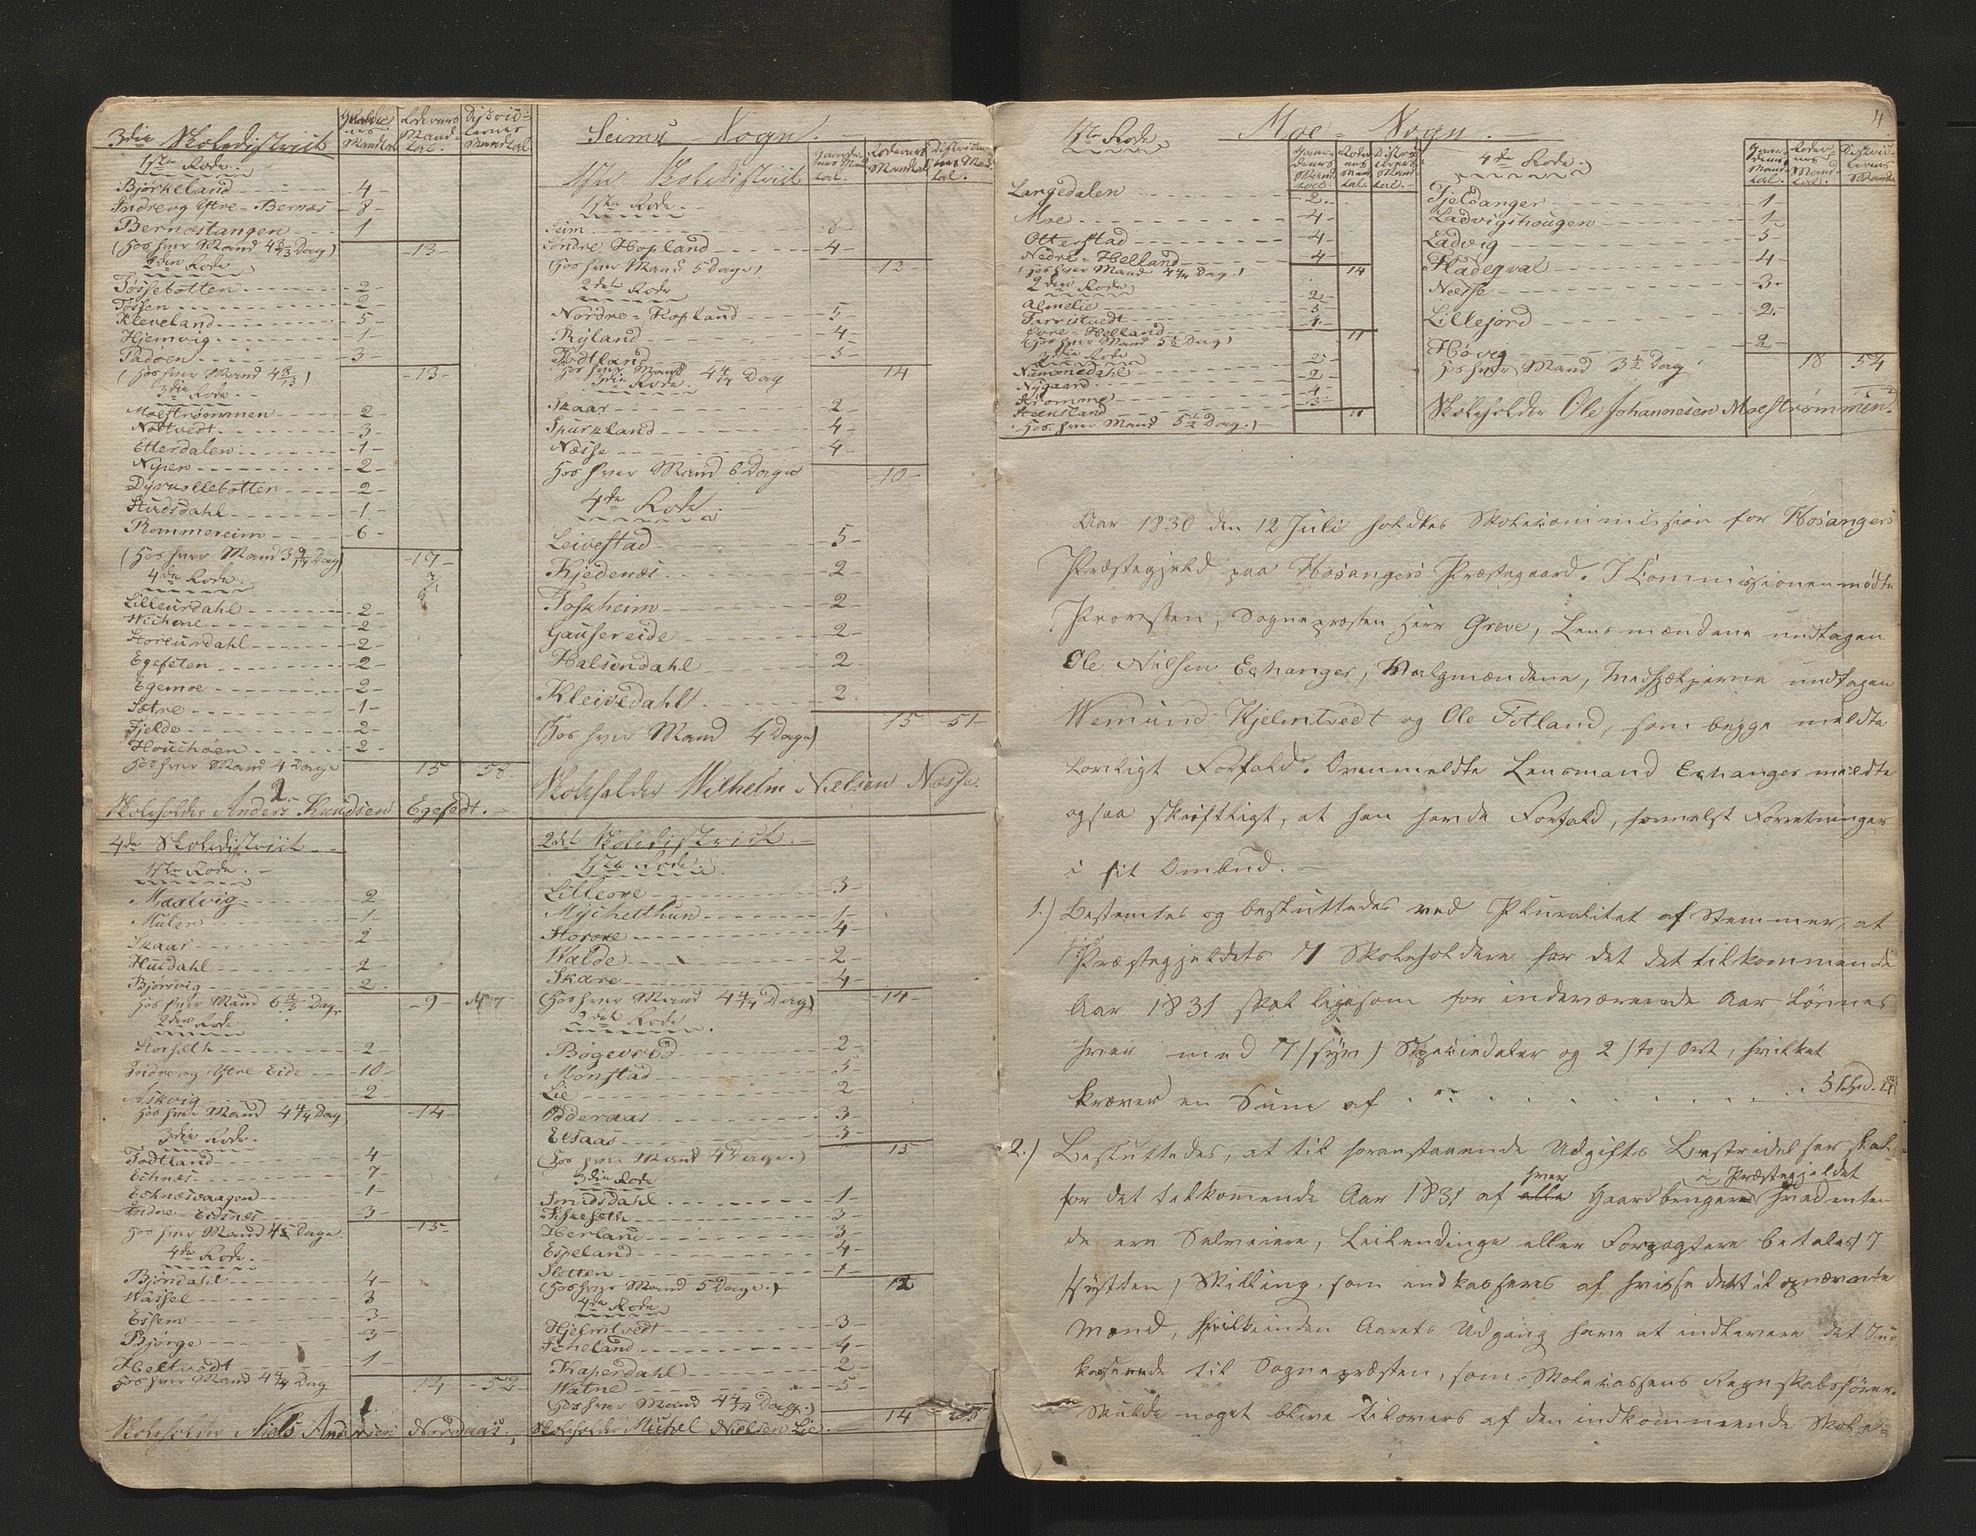 3die Skoledistrict
1ste Rode.
Bjørkeland - 4 -
Indre og Ytre-Bernæs - 8 -
Bernæstangen - 1
(Hos hver Mand 4 8/13 Dag) - 13 -
2den Rode
Tøssebotten - 2 -
Tossen - 2 -
Kleveland - 5 -
Hjemvig - 1 -
Padøen - 3 -
(Hos hver Mand 4 8/13) - 13 -
3die Rode.
Molstrømmen - 2 -
Nottvedt - 3 -
Etterdalen - 1 -
Nipen - 2 -
Dyrkollebotten - 2 -
Hudsdahl - 1 -
Rommereim - 6 -
(Hos hver Mand 3 9/17 Dag) - 17 -
4de Rode.
Lilleurdahl - 2 -
Wichene - 2 -
Storeurdahl - 2 -
Egeseten - 2 -
Egemoe - 2 -
Sætre - 1 -
Fjelde - 2 -
Houghöen - 2 -
Hos hver Mand 4 Dage 15 58
Skoleholder Anders Knudsen Egesedt.
4de Skoledistrict
1ste Rode.
Maalvig 2
Mulen - 1 -
Skaar - 2
Husdahl 2
Bjørvig - 2
Hos hver Mand 6 2/3 Dag - 9
2den Rode
Storseth - 2
Indre og Ytre Eide - 10 -
Askvig - 2 -
Hos hver Mand 4 4/14 Dag - 14 -
3die Rode.
Todtland - 4 -
Echnes - 7
Echnesvaagen - 1 -
Indre-Eidsnes - 3 -
Hos hver Mand 4 Dage - 15 -
4de Rode.
Bjöndahl - 4 -
Wassel 3
Essem - 3 -
Bjørge - 3
Heltvedt 1
Hos hver Mand 4 4/14 Dag 14 - 52 -
Skoleholder Niels Andersen Nordaas.
Seims Sogn.
1ste Skoledistrict
1ste Rode.
Seim - 8 -
Indre Hopland - 4 -
(Hos hver Mand 5 Dage) - 12 -
2det Rode
Nordre-Hopland - 5 -
Ryland - 4 -
Fodtland - 5 -
Hos hver Mand 4 4/14 Dag 14
3die Rode.
Skaar - 2 -
Spurkland - 4 -
Næsse - 4 -
Hos hver Mand 6 Dage - 10 -
4de Rode
Leivestad - 5 -
Kjedenæs - 2 -
Foskheim - 2 -
Gausereide - 2 -
Halsendahl 2
Kleivedahl 2.
(Hos hver Mand 4 Dage) 15 - 51 -
Skoleholder Wilhelm Nielsen Næsse.
2det Skoledistrict.
1ste Rode.
Lilleore - 3 -
Mychelthun - 1 -
Storore - 4 -
Walde - 2 -
Skare - 4 -
(Hos hver Mand 4 4/14 Dag) - 14 -
2det Rode
Bøgevold - 2 -
Monstad - 5 -
Lie 2
Odderaas - 3 -
Elsaas - 3 -
(Hos hver Mand 4 Dage.) 15
3die Rode
Smidsdahl - 1 -
Fiskeseth - 3 -
Herland - 3 -
Espeland - 4 -
Sletten - 1 -
(Hos hver Mand 5 Dage.) 12
4de Rode
Hjelmtvedt - 3 -
Icheland - 4 -
Kaperdahl - 2 -
Watne - 5 -
(Hos hver Mand 4 4/14 Dag.) 14
Skoleholder Michel Nielsen Lie.
4.
Moe-Sogn.
1ste Rode
Langedalen - 2 -
Moe - 4 -
Otterstad - 4 -
Nedre-Helland - 4
(Hos hver Mand 4 4/14 Dag.) 14
2den Rode
Almelie - 2 -
Farestvedt - 5
Øvre-Helland - 4 -
(Hos hver Mand 5 5/11 Dag) 11
3die Rode
Nummedahl - 2 -
Nygaard - 2 -
Kromme - 4
Steensland - 3 -
(Hos hver Mand 5 5/11 Dag.) 11
4de Rode.
Fjeldanger 1
Ladvigshougen - 1 -
Ladvig 5
Fladeqval - 4 -
Næsse - 3 -
Lillefjord - 2 -
Høvig - 2 -
Hos hver Mand 3 1/3 Dag 18 54
Skoleholder Ole Johannesen Moestrømmen.
Aar 1830 den 12 Juli holdtes Skolecommission for Hosangers
Præstegjeld paa Hosangers Præstegaard. I Commissionen mødte
Provsten, Sognepræsten Herr Greve, Lensmændene undtagen
Ole Nielsen Echanger, Valgmændene, Medhjelperne undtagen
Wemund Hjelmtvedt og Ole Fotland, som begge meldte
lovligt Forfald. Ovenmeldte Lensmand Echanger meldte
ogsaa skriftligt, at han havde Forfald, formedelst Forretninger
i sit Ombud.
1.) Bestemtes og besluttedes ved Pluralitet af Stemmer, at
Præstegjeldets 7 Skoleholdere for det tilkommende
Aar 1831 skal ligesom for indeværende Aar lønnes
hver med 7 (syv) Speciedaler og 2 (to) Ort, hvilket
kræver en Sum af . . . . . . . 51 Spd.
2.) Besluttedes, at til foranstaaende Udgifts Bestridelse skal
for det tilkommende Aar 1831 af alle hver Gaardbruger i Præstegjeldet hvad enten
de ere Selveiere, Leilendinge eller Forpagtere betales 17
(sytten) Skilling, som indkasseres af hvisse dertil opnævnte
Mænd, hvilke inden Aarets Udgang have at indlevere det Ind-
kasserede til Sognepræsten, som Skolecassens Regnskabsfører.
Skulde noget blive tilovers af den indkommende Skole-